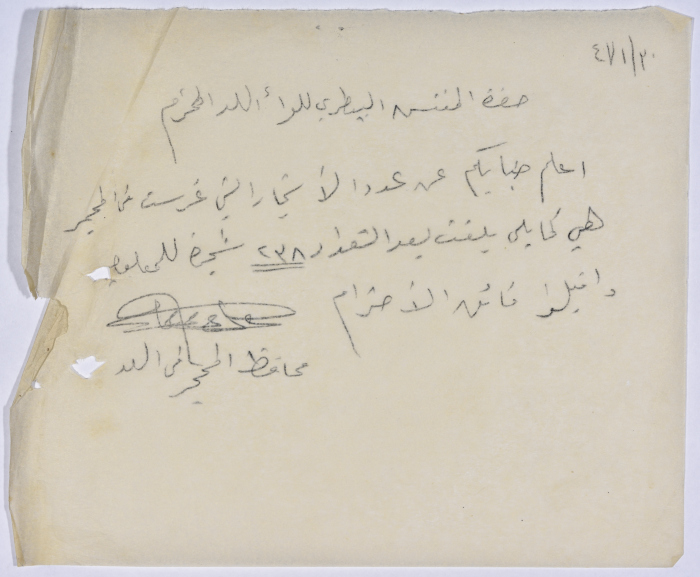 ٤٧/١/٣٠
حضرة المفتش البيطري للواء اللد المحترم
اعلم جنابكم عن عدد الأشجار التي غرست في المحجر
هي كما يلي بلغت بعد التعداد ٢٣٨ شجرة للمعلومية
واقبلوا فائق الاحترام
محافظ المحجر في اللد